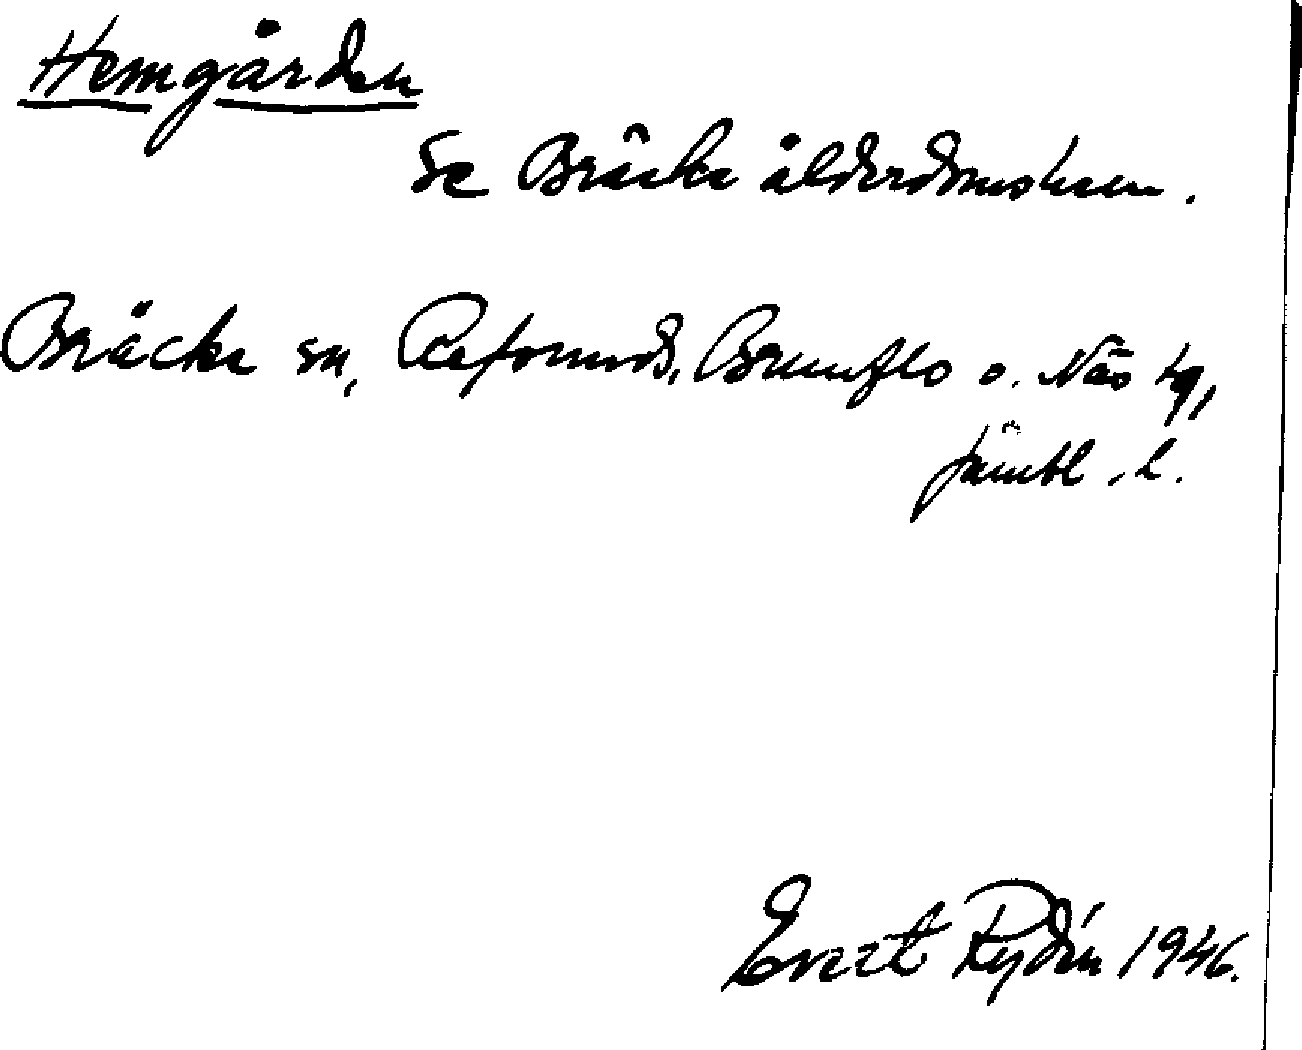 Hemgården
Se Bräcke ålderdomshem.
Bräcke sn, Refsunds, Brunflo o. Näs tg,
Jämtl. l.
Evert Rydin 1946.